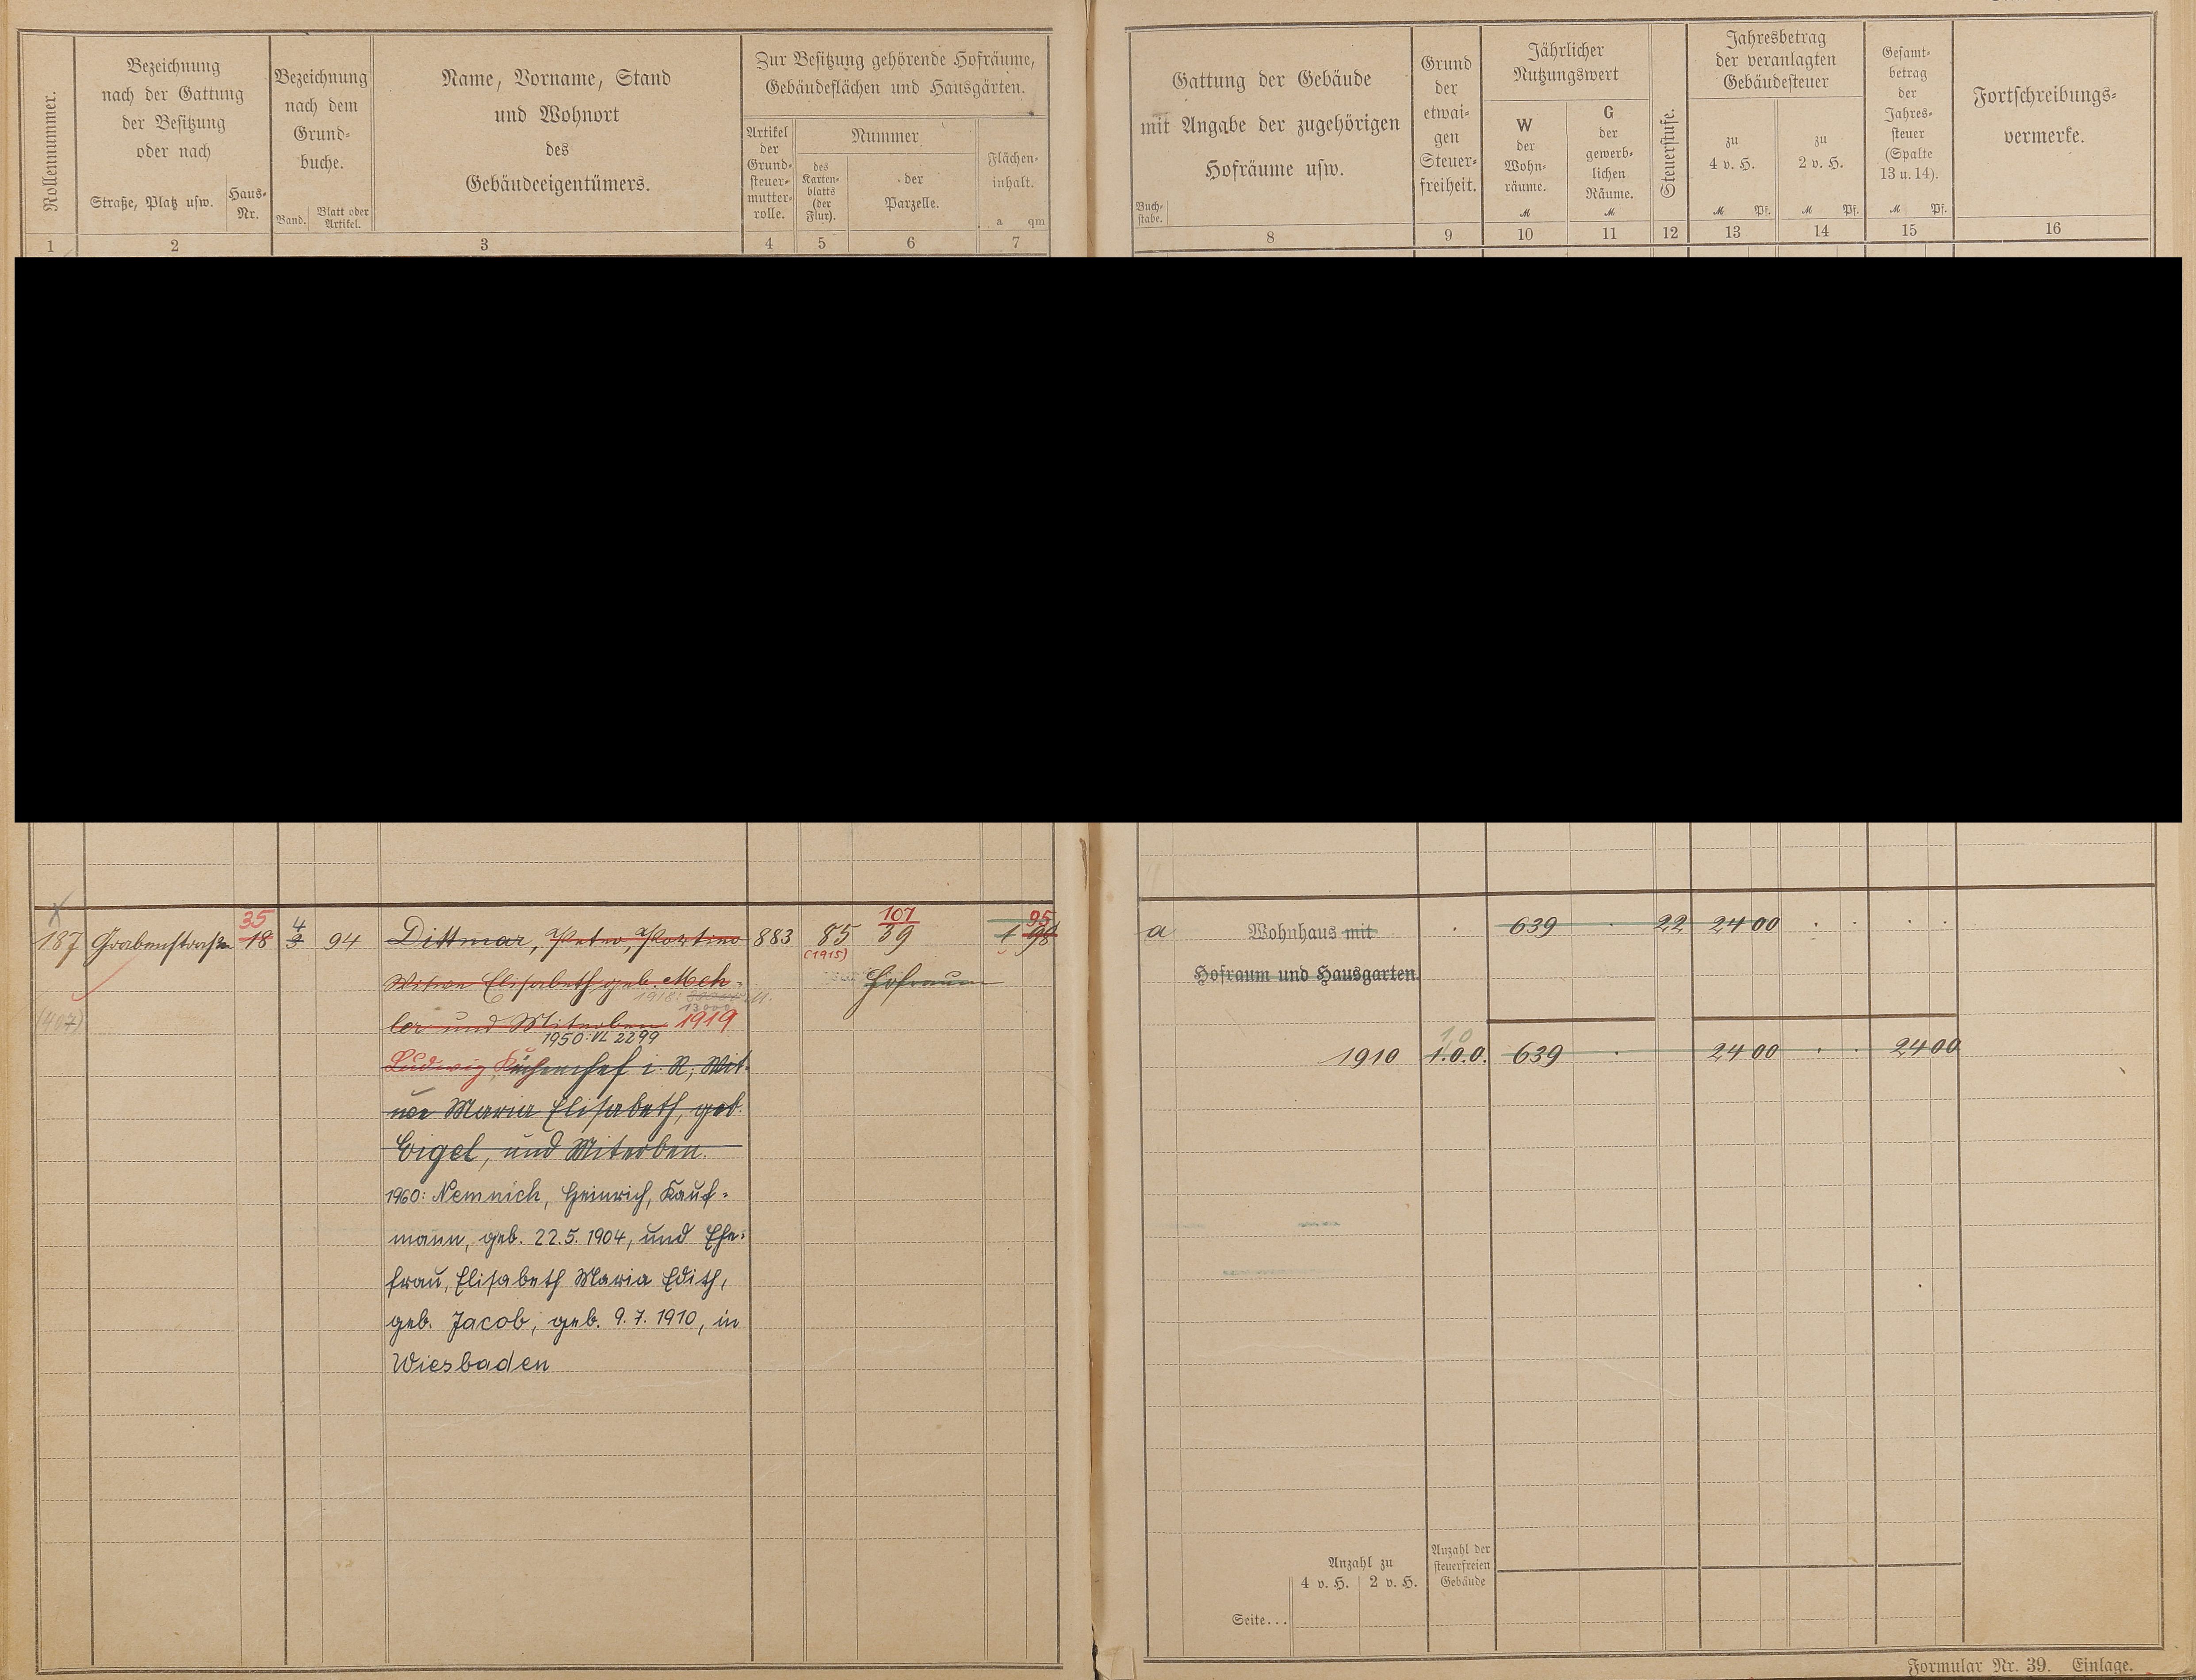 Rollennummer.
Bezeichnung
nach der Gattung
der Besitzung
oder nach
Straße, Platz usw.
Haus-
Nr.
Bezeichnung
nach dem
Grund-
buche.
Band.
Blatt oder
Artikel.
Name, Vorname, Stand
und Wohnort
des
Gebäudeeigentümers.
Zur Besitzung gehörende Hofräume,
Gebäudeflächen und Hausgärten.
Artikel
der
Grund-
steuer-
mutter-
rolle.
Nummer
des
Karten-
blatts
(der
Flur).
der
Parzelle.
Flächen-
inhalt.
a qm
1 2 3 4 5 6 7
Gattung der Gebäude
mit Angabe der zugehörigen
Hofräume usw.
Buch-
stabe.
Grund
der
etwai-
gen
Steuer-
freiheit.
Jährlicher
Nutzungswert
W
der
Wohn-
räume.
M
G
der
gewerb-
lichen
Räume.
M
Steuerstufe.
Jahresbetrag
der veranlagten
Gebäudesteuer
zu
4 v. H.
M Pf.
zu
2 v. H.
M Pf.
Gesamt-
betrag
der
Jahres-
steuer
(Spalte
13 u. 14).
M Pf.
Fortschreibungs-
vermerke.
8 9 10 11 12 13 14 15 16
35 4 107 95
187 Grabenstraße 18 3 94 Dittmar, Peter, Portier 883 85 39 1 98
(1915)
Witwe Elisabeth geb. Meh-
Hofraum
1918:
13000
(407)
ler und Miterben 1919
1950: VL 2299
Ludwig, Küchenchef i. R., Wit-
we Maria Elisabeth, geb.
Eigel, und Miterben.
1960: Nemnich, Heinrich, Kauf-
mann, geb. 22.5.1904, und Ehe-
frau, Elisabeth Maria Edith,
geb. Jacob, geb. 9.7.1910, in
Wiesbaden
a Wohnhaus mit 639 22 24 00
Hofraum und Hausgarten.
1910 1.0.0. 639 24 00 24 00
Anzahl zu
4 v. H. 2 v. H.
Anzahl der
steuerfreien
Gebäude
Seite...
Formular Nr. 39. Einlage.